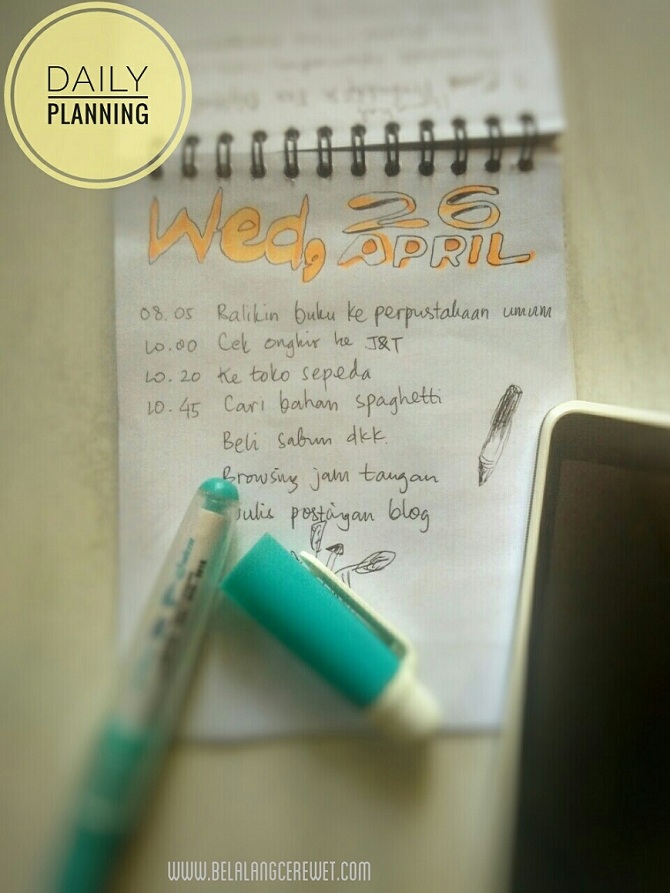 DAILY
PLANNING
Wed, 26
APRIL
08.05 Balikin buku ke perpustakaan umum
10.00 Cek ongkir ke J&T
10.20 Ke toko sepeda
10.45 Cari bahan spaghetti
Beli sabun dkk.
Browsing jam tangan
postingan blog
WWW.BELALANGCEREWET.COM